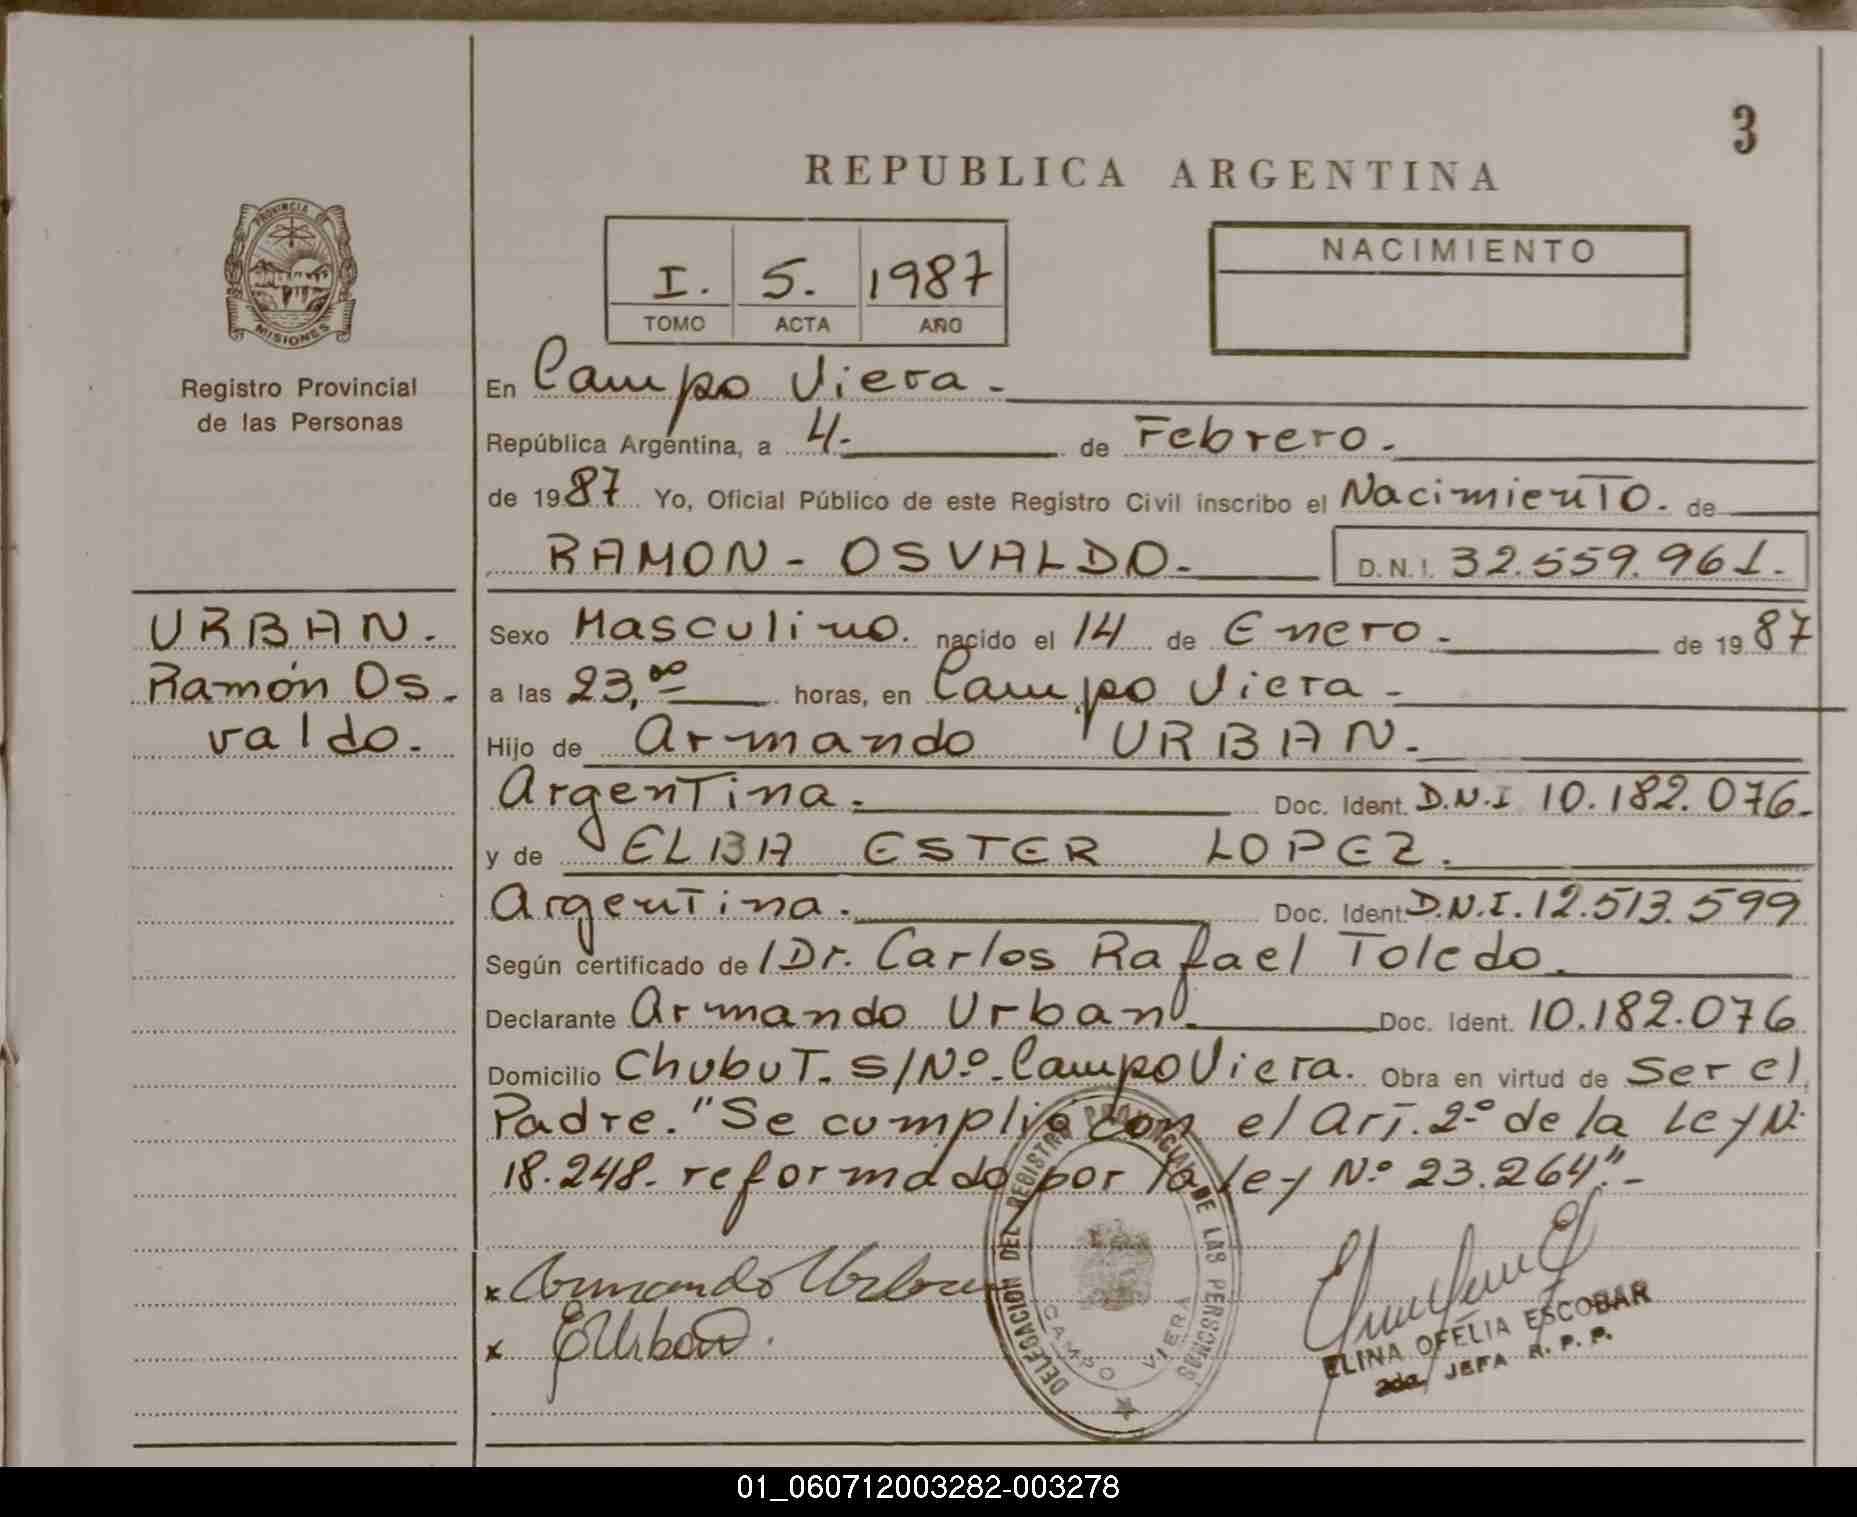 3
REPUBLICA ARGENTINA
PROVINCIA DE
MISIONES
Registro Provincial
de las Personas
I. 5. 1987
TOMO ACTA AÑO
NACIMIENTO
En Campo Viera.
República Argentina, a 4. de Febrero.
de 1987 Yo, Oficial Público de este Registro Civil inscribo el Nacimiento. de
RAMON - OSVALDO. D.N.I. 32.559.961.
URBAN.
Ramón Os.
valdo.
Sexo Masculino. nacido el 14 de Enero. de 1987
a las 23,00 horas, en Campo Viera.
Hijo de Armando URBAN.
Argentina. Doc. Ident. D.N.I 10.182.076.
y de ELBA ESTER LOPEZ.
Argentina. Doc. Ident. D.N.I. 12.513.599
Según certificado de /Dr. Carlos Rafael Toledo.
Declarante Armando Urban. Doc. Ident. 10.182.076
Domicilio Chubut. S/Nº. Campo Viera. Obra en virtud de Ser el
Padre. "Se cumplió con el Art. 2º de la Ley Nº
18.248. reformado por la ley Nº 23.264".-
x Armando Urban
x EUrban.
DELEGACION DEL REGISTRO PROVINCIAL DE LAS PERSONAS
CAMPO VIERA
ELINA OFELIA ESCOBAR
2da. JEFA R. P. P.
01_060712003282-003278